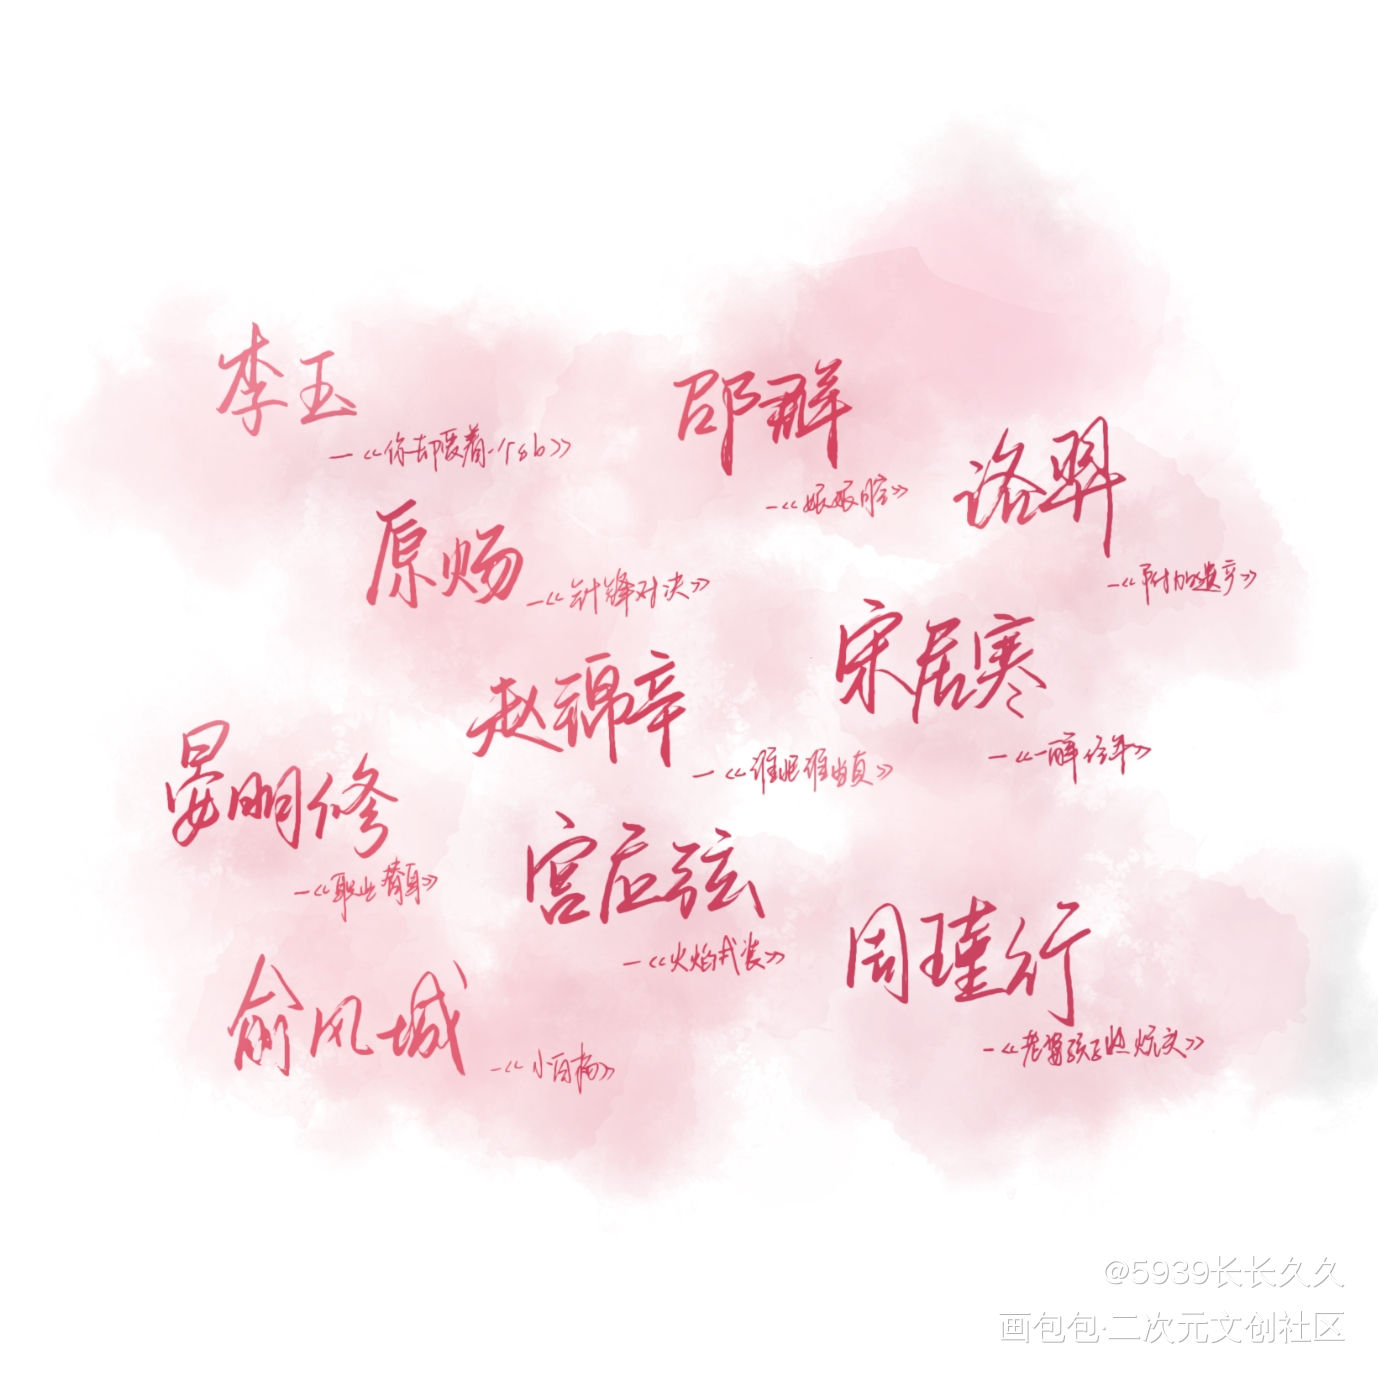 李玉
—《你却爱着一个sb》
邵群
—《娘娘腔》
洛羿
—《附加遗产》
原炀
—《针锋对决》
宋居寒
—《一醉经年》
赵锦辛
—《谁把谁当真》
晏明修
—《职业替身》
宫应弦
—《火焰戎装》
周瑾行
—《老婆孩子热炕头》
俞风城
—《小白杨》
@5939长长久久
画包包·二次元文创社区